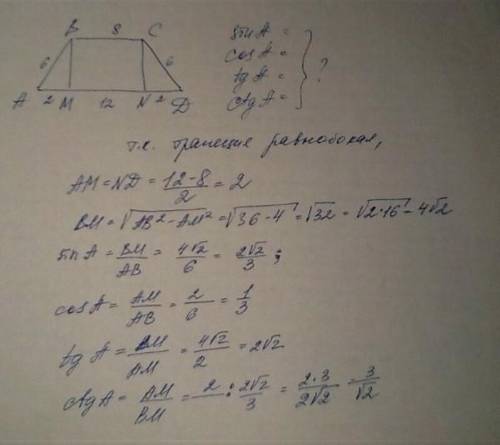 B 8 C
6 6
A 2 M 12 N 2 D
sin A =
cos A =
tg A =
ctg A =
?
т.к. трапеция равнобокая,
AM = ND = \frac{12-8}{2} = 2
BM = \sqrt{AB² - AM²} = \sqrt{36-4} = \sqrt{32} = \sqrt{2·16} - 4√2
sin A = \frac{BM}{AB} = \frac{4√2}{6} = \frac{2√2}{3};
cos A = \frac{AM}{AB} = \frac{2}{6} = \frac{1}{3}
tg A = \frac{BM}{AM} = \frac{4√2}{2} = 2√2
ctg A = \frac{AM}{BM} = 2 : \frac{2√2}{3} = \frac{2·3}{2√2} = \frac{3}{√2}